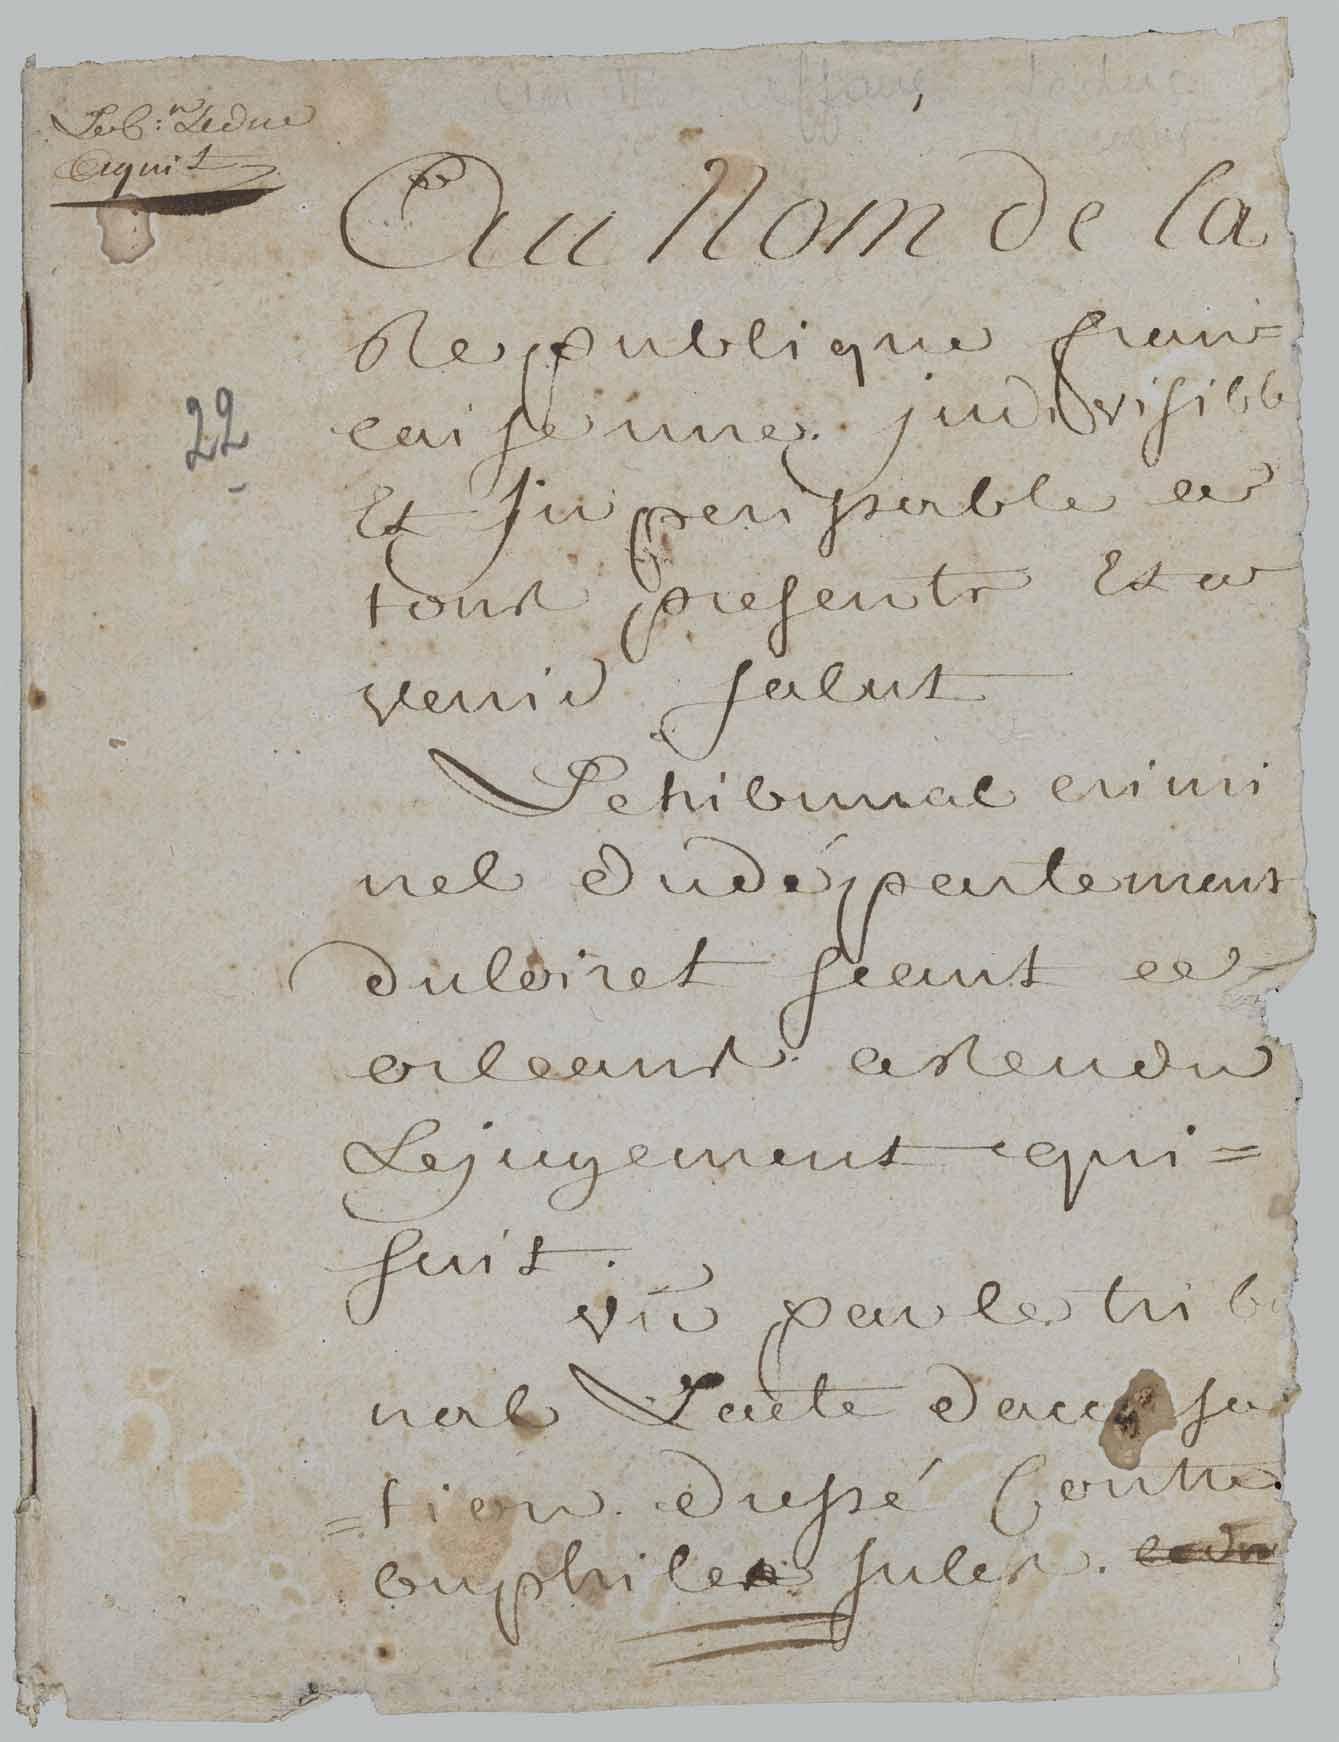 Seb.n Leduc
Aquit
22
Au Nom de la
Republique fran=
caise une. indivisible
Et Inperissable a
tous presents Et a
venir salut
Le tribunal crimi
nel du département
du loiret seant a
orleans. a Rendu
Le jugement qui=
suit.
vu par le tribu
nal L'acte d'accusa
=tion. dressé Contre.
jules.